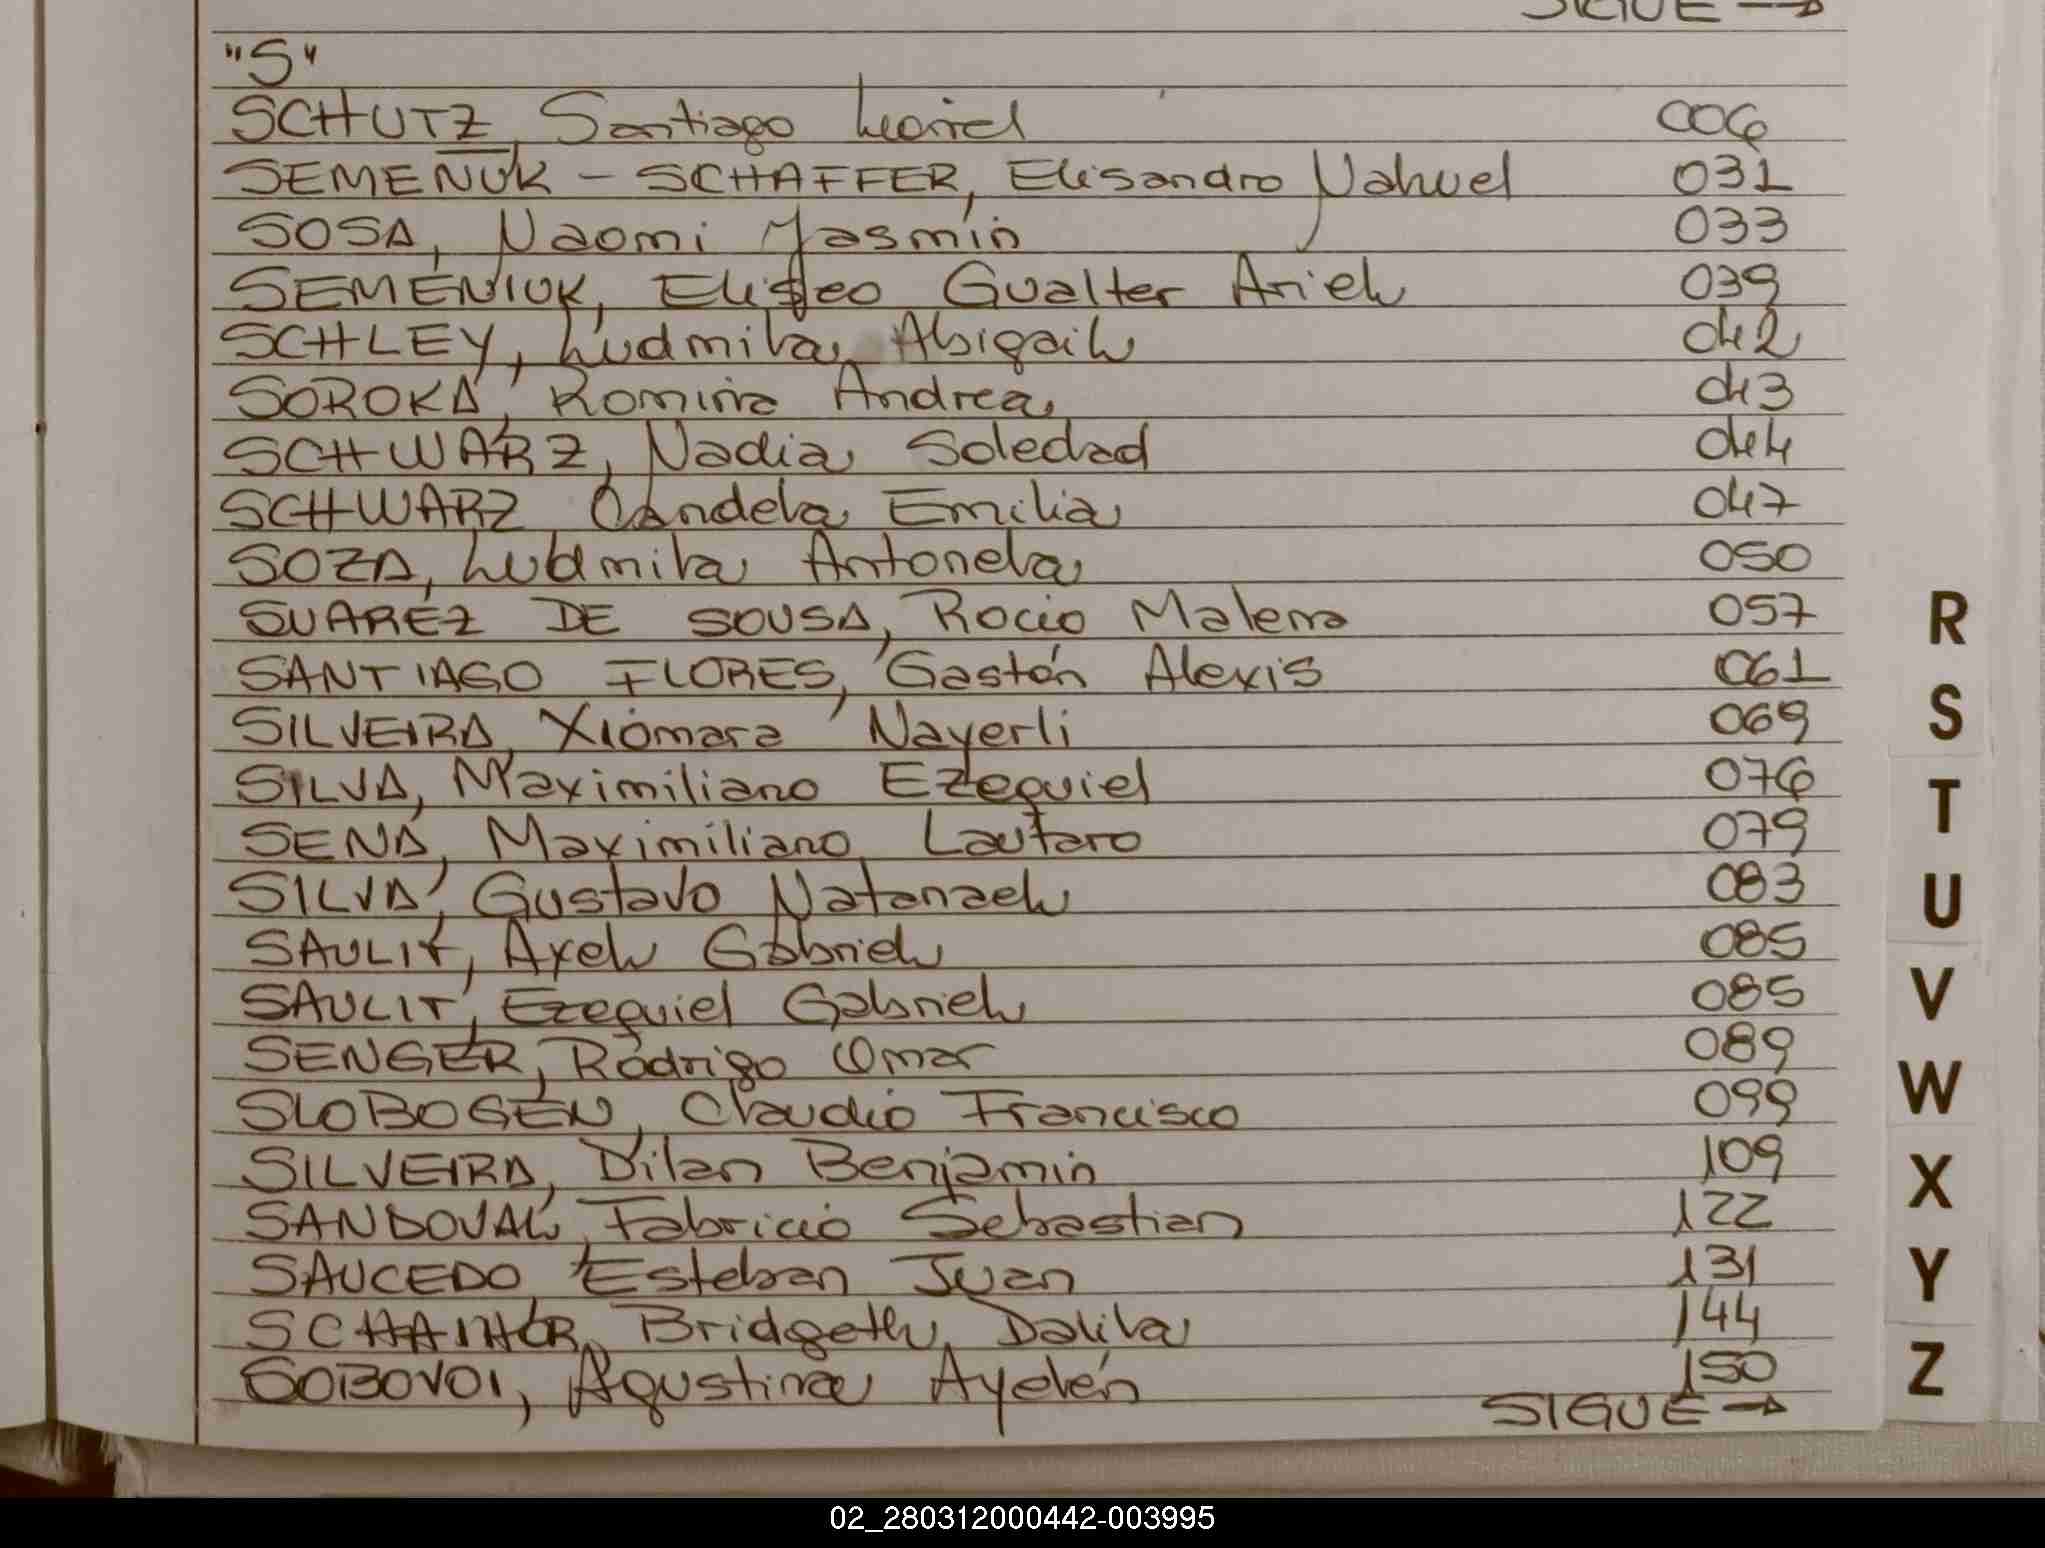 SIGUE →
"S"
SCHUTZ, Santiago Leonel 006
SEMENUK - SCHAFFER, Elisandro Nahuel 031
SOSA, Naomi Yasmin 033
SEMENIUK, Eliseo Gualter Ariel 039
SCHLEY, Ludmila Abigail 042
SOROKA, Romina Andrea 043
SCHWARZ, Nadia Soledad 044
SCHWARZ Candela Emilia 047
SOZA, Ludmila Antonela 050
SUAREZ DE SOUSA, Rocio Malena 057
SANTIAGO FLORES, Gastón Alexis 061
SILVEIRA, Xiomara Nayerli 069
SILVA, Maximiliano Ezequiel 076
SENA, Maximiliano Lautaro 079
SILVA, Gustavo Natanael 083
SAULIT, Axel Gabriel 085
SAULIT, Ezequiel Gabriel 085
SENGER, Rodrigo Omar 089
SLOBOGEN, Claudio Francisco 099
SILVEIRA, Dilan Benjamin 109
SANDOVAL, Fabricio Sebastian 122
SAUCEDO, Esteban Juan 131
Bridgeth Dalila 144
SOBOVOI, Agustina Ayelén 150
SIGUE →
R
S
T
U
V
W
X
Y
Z
02_280312000442-003995